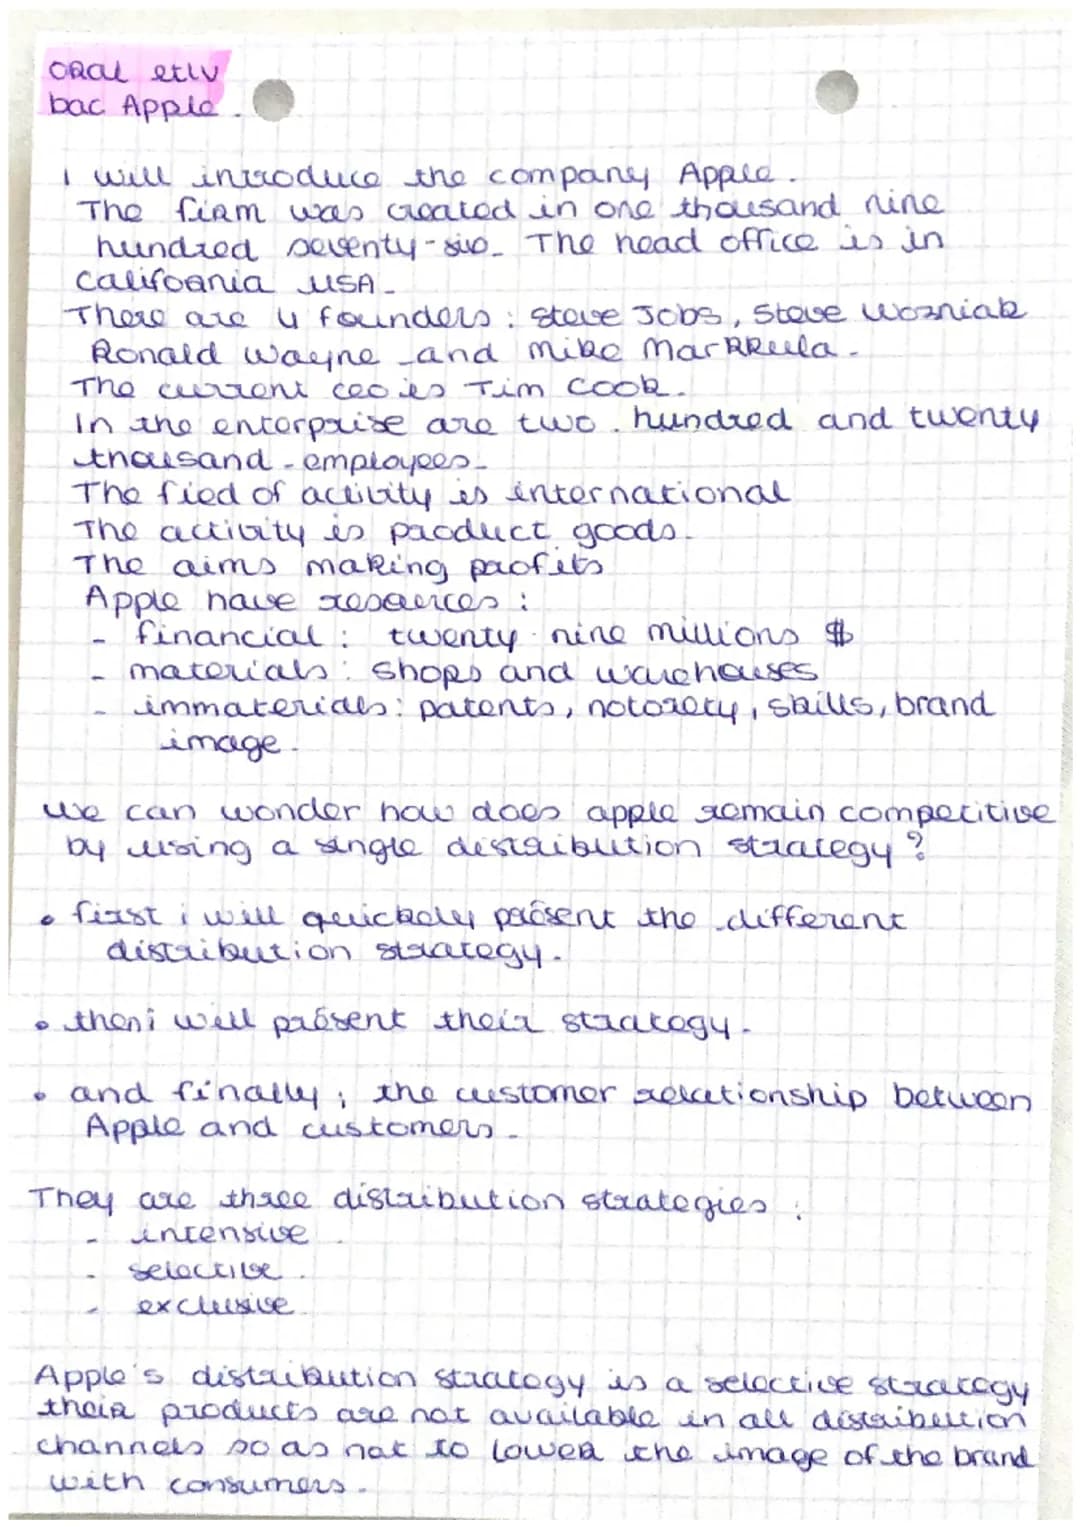 ORAL etlv
bac Apple.
I will introduce the company Apple.
The firm was created in one thousand nine
hundred seventy-six. The head office is in
California USA.
There are 4 founders : Steve Jobs, Steve Wozniak
Ronald Wayne and Mike Markkula.
The current ceo is Tim Cook.
In the enterprise are two hundred and twenty
thousand employees.
The fied of activity is international
The activity is product goods.
The aims making profits
Apple have resources :
- financial : twenty nine millions $
- materials : shops and warehouses
- immaterials : patents, notorety, skills, brand
image.
We can wonder how does apple remain competitive
by using a single distribution strategy ?
• first i will quickely présent the different
distribution strategy.
• then i will présent their strategy.
• and finally, the customer relationship between
Apple and customers.
They are three distribution strategies :
- intensive
- selective
- exclusive
Apple's distribution strategy is a selective strategy
their products are not available in all distribution
channels so as not to lower the image of the brand
with consumers.